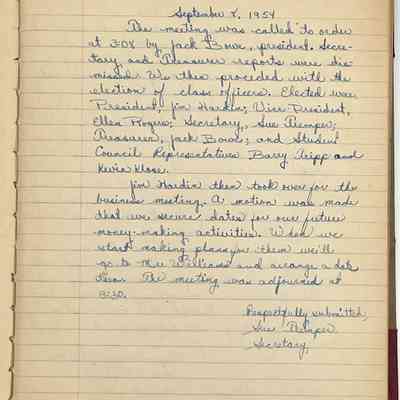 September 8, 1954
The meeting was called to order
at 3:08 by Jack Bowe, president. Secre-
tary, and Treasurer reports were dis-
missed. We then proceded with the
election of class officers. Elected were
President, Jim Hardin; Vice President,
Ellen Rogers; Secretary, Sue Themper;
Treasurer, Jack Bowe; and Student
Council Representatives Barry Tripp and
Kevin Klose.
Jim Hardin then took over for the
business meeting. A motion was made
that we secure dates for our future
money-making activities. When we
start making plans for them we'll
go to Mr. Williams and arrange a date
then. The meeting was adjourned at
3:30.
Respectfully submitted,
Sue Themper
Secretary